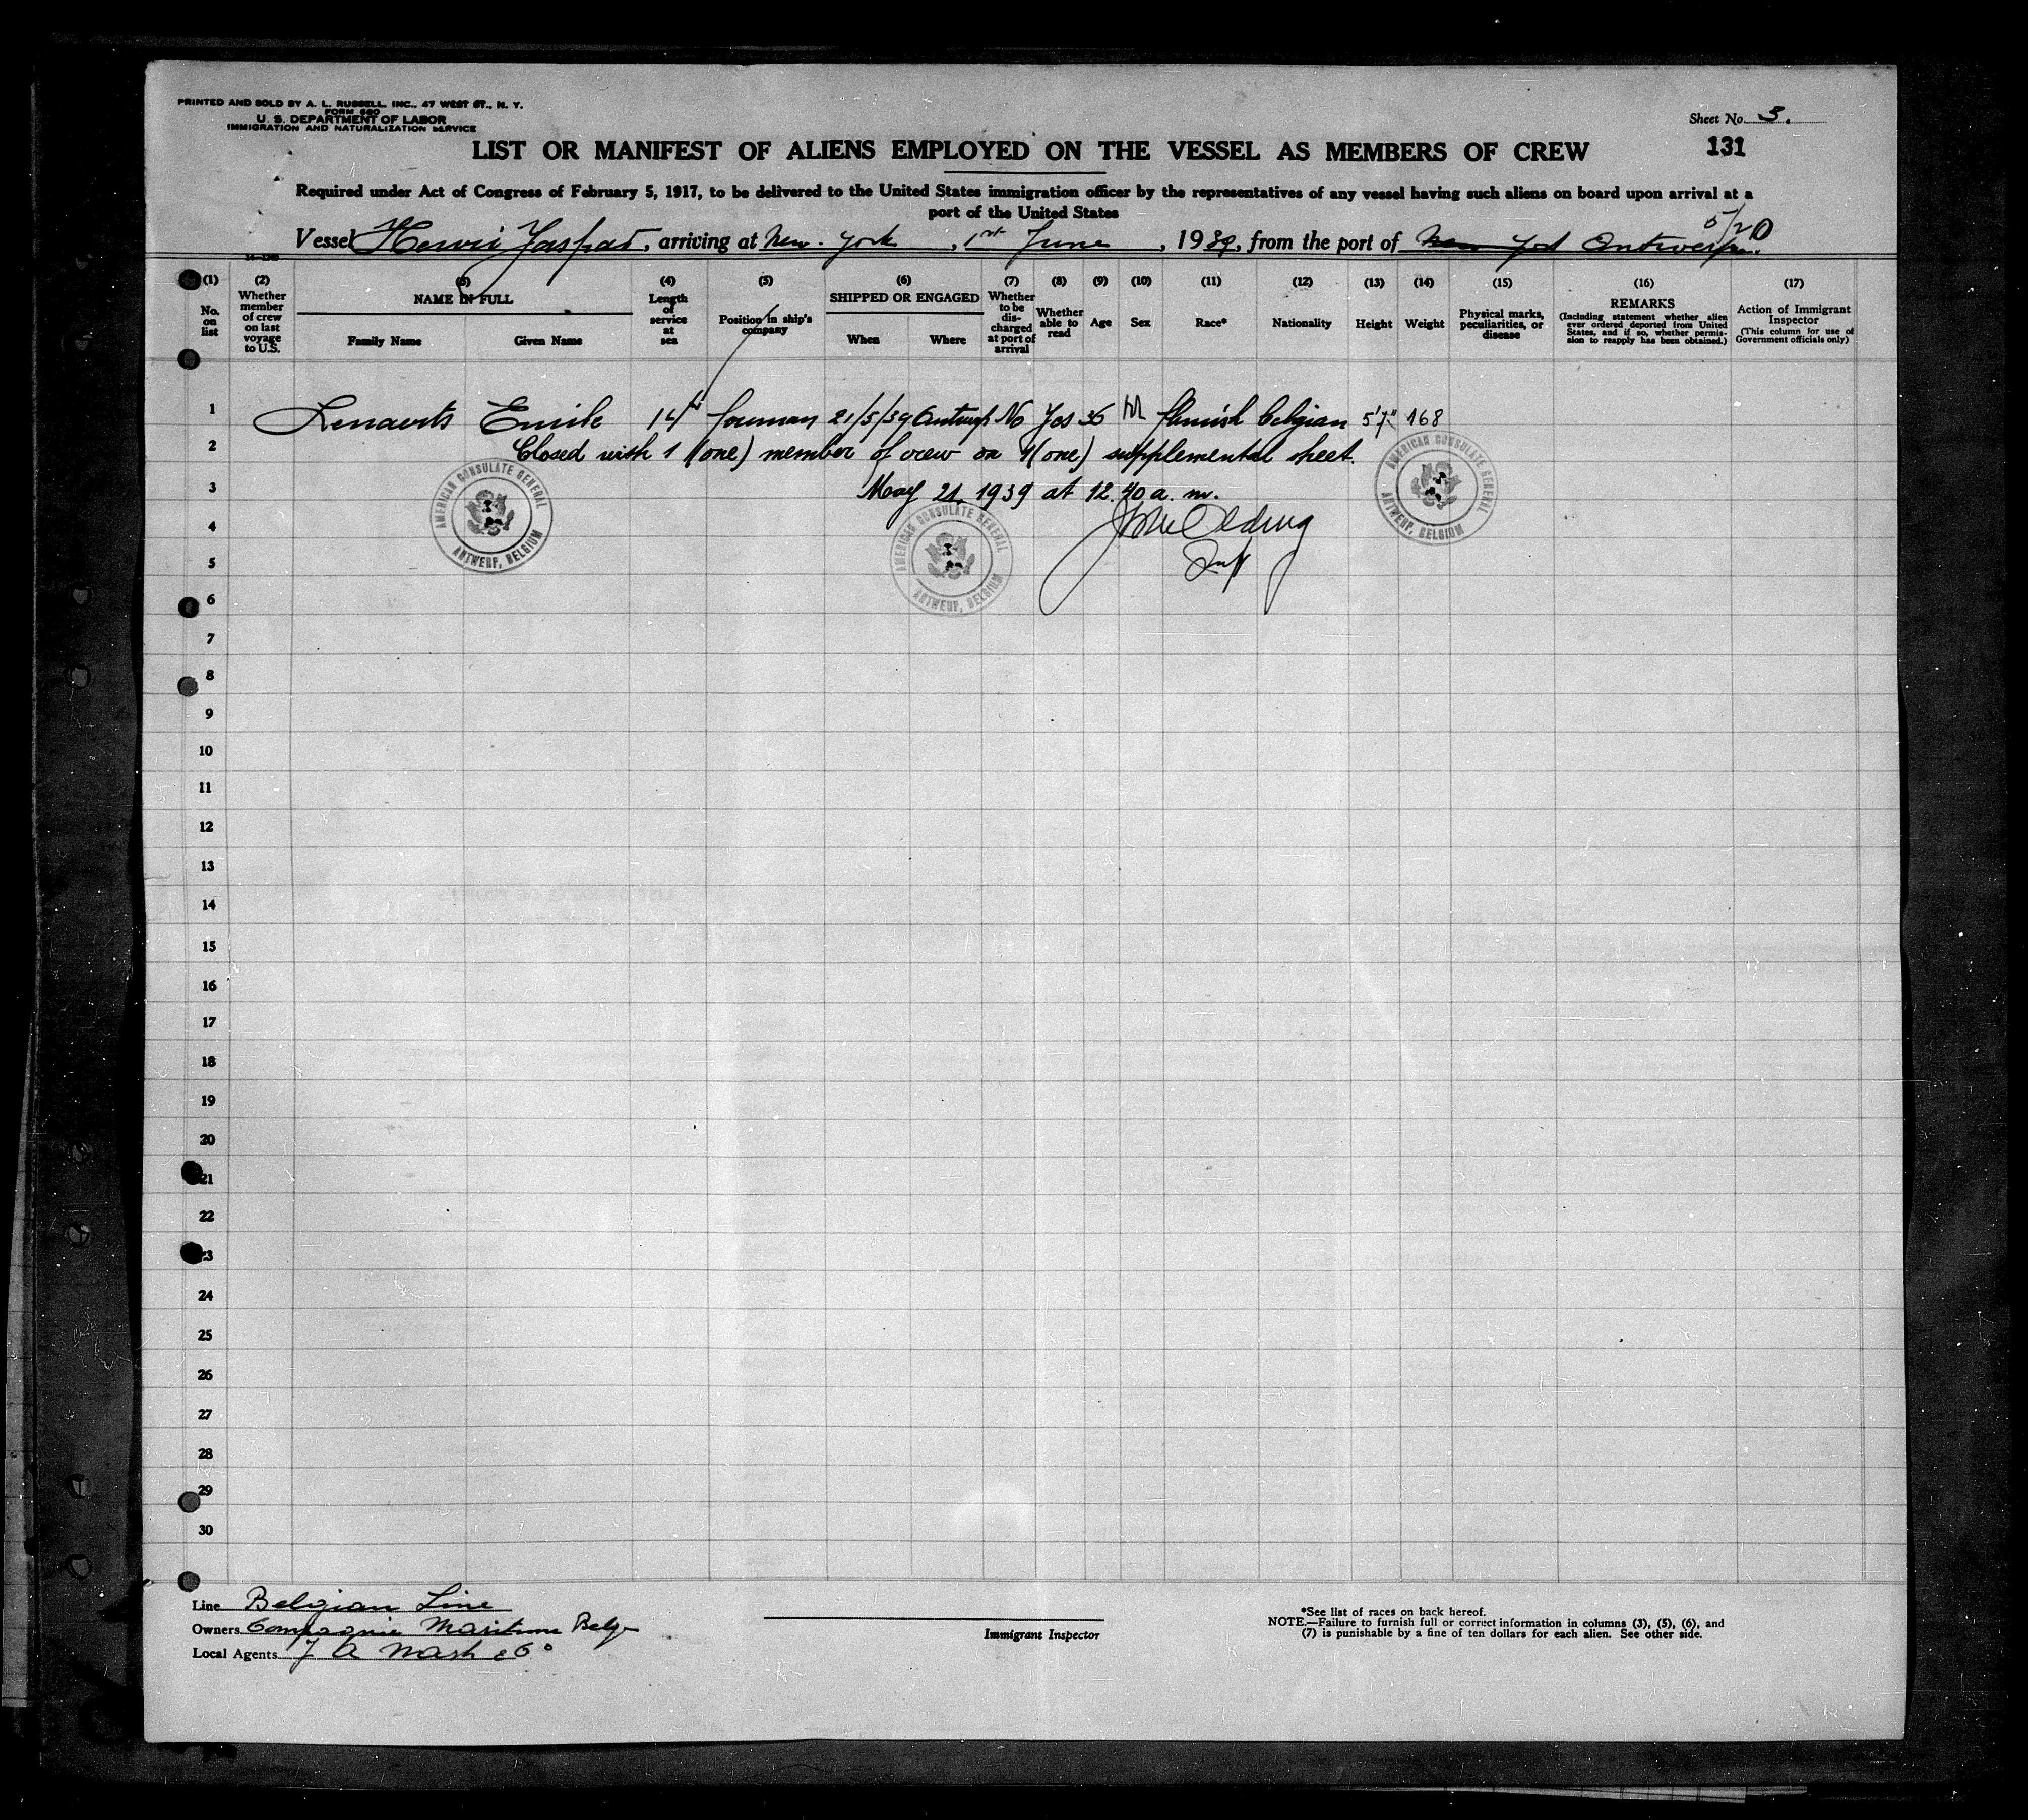 PRINTED AND SOLD BY A. L. RUSSELL, INC., 47 WEST ST., N. Y.
FORM 680
U. S. DEPARTMENT OF LABOR
IMMIGRATION AND NATURALIZATION SERVICE
Sheet No. 3.
131
LIST OR MANIFEST OF ALIENS EMPLOYED ON THE VESSEL AS MEMBERS OF CREW
Required under Act of Congress of February 5, 1917, to be delivered to the United States immigration officer by the representatives of any vessel having such aliens on board upon arrival at a
port of the United States
5/20
Vessel Henri Jaspar, arriving at New York, 1st June, 1939, from the port of New York Antwerp.
(1) No. on list
(2) Whether member of crew on last voyage to U.S.
(3) NAME IN FULL
Family Name Given Name
(4) Length of service at sea
(5) Position in ship's company
(6) SHIPPED OR ENGAGED
When Where
(7) Whether to be discharged at port of arrival
(8) Whether able to read
(9) Age
(10) Sex
(11) Race*
(12) Nationality
(13) Height
(14) Weight
(15) Physical marks, peculiarities, or disease
(16) REMARKS
(Including statement whether alien ever ordered deported from United States, and if so, whether permission to reapply has been obtained.)
(17) Action of Immigrant Inspector
(This column for use of Government officials only)
1 Lenaerts Emile 14 21/5/39 Antwerp No Yes 36 M flemish belgian 5'7" 168
2 Closed with 1 (one) member of crew on 1 (one) supplemental sheet.
3 May 21, 1939 at 12.40 a. m.
4
5
6
AMERICAN CONSULATE GENERAL ANTWERP, BELGIUM
AMERICAN CONSULATE GENERAL ANTWERP, BELGIUM
AMERICAN CONSULATE GENERAL ANTWERP, BELGIUM
7
8
9
10
11
12
13
14
15
16
17
18
19
20
21
22
23
24
25
26
27
28
29
30
Line Belgian Line
Owners Compagnie Maritime Belge
Local Agents T A Nash & Co
Immigrant Inspector
*See list of races on back hereof.
NOTE.—Failure to furnish full or correct information in columns (3), (5), (6), and
(7) is punishable by a fine of ten dollars for each alien. See other side.